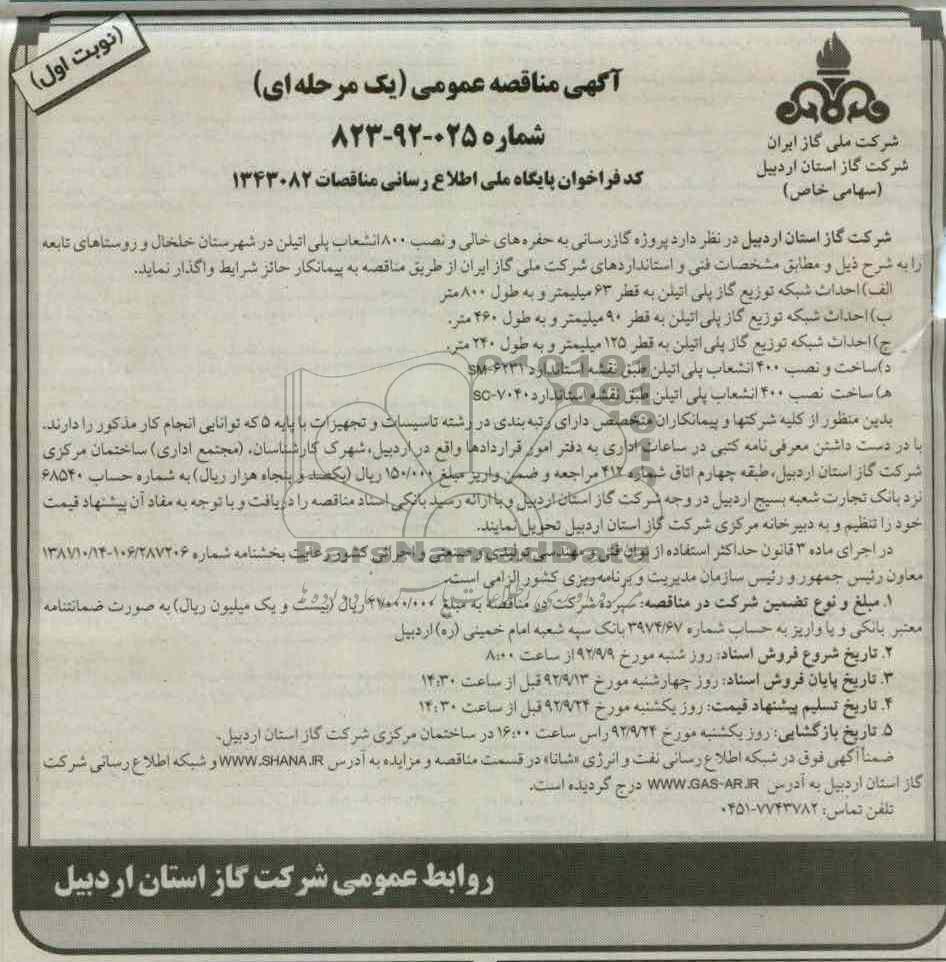 (نوبت اول)
آگهی مناقصه عمومی (یک مرحله ای)
شماره ۰۲۵-۹۲-۸۲۳
کد فراخوان پایگاه ملی اطلاع رسانی مناقصات ۱۳۴۳۰۸۲
شرکت ملی گاز ایران
شرکت گاز استان اردبیل
(سهامی خاص)
شرکت گاز استان اردبیل در نظر دارد پروژه گازرسانی به حفره های خالی و نصب ۸۰۰ انشعاب پلی اتیلن در شهرستان خلخال و روستاهای تابعه
را به شرح ذیل و مطابق مشخصات فنی و استانداردهای شرکت ملی گاز ایران از طریق مناقصه به پیمانکار حائز شرایط واگذار نماید.
الف) احداث شبکه توزیع گاز پلی اتیلن به قطر ۶۳ میلیمتر و به طول ۸۰۰ متر
ب) احداث شبکه توزیع گاز پلی اتیلن به قطر ۹۰ میلیمتر و به طول ۴۶۰ متر.
ج) احداث شبکه توزیع گاز پلی اتیلن به قطر ۱۲۵ میلیمتر و به طول ۲۴۰ متر.
د) ساخت و نصب ۴۰۰ انشعاب پلی اتیلن طبق نقشه استاندارد SM-۶۲۳۱
ه) ساخت نصب ۴۰۰ انشعاب پلی اتیلن طبق نقشه استاندارد SC-۷۰۴۰
بدین منظور از کلیه شرکتها و پیمانکاران متخصص دارای رتبه بندی در رشته تاسیسات و تجهیزات با پایه ۵ که توانایی انجام کار مذکور را دارند.
با در دست داشتن معرفی نامه کتبی در ساعات اداری به دفتر امور قراردادها واقع در اردبیل، شهرک کارشناسان، (مجتمع اداری) ساختمان مرکزی
شرکت گاز استان اردبیل، طبقه چهارم اتاق شماره ۴۱۲ مراجعه و ضمن واریز مبلغ ۱۵۰/۰۰۰ ریال (یکصد و پنجاه هزار ریال) به شماره حساب ۶۸۵۴۰
نزد بانک تجارت شعبه بسیج اردبیل در وجه شرکت گاز استان اردبیل و با ارائه رسید بانکی اسناد مناقصه را دریافت و با توجه به مفاد آن پیشنهاد قیمت
خود را تنظیم و به دبیرخانه مرکزی شرکت گاز استان اردبیل تحویل نمایند.
در اجرای ماده ۳ قانون حداکثر استفاده از توان فنی و مهندسی تولیدی و صنعتی و اجرائی کشور رعایت بخشنامه شماره ۱۰۶/۲۸۷۲۰۶-۱۳۸۷/۱۰/۱۴
معاون رئیس جمهور و رئیس سازمان مدیریت و برنامه ریزی کشور الزامی است.
۱. مبلغ و نوع تضمین شرکت در مناقصه: سپرده شرکت در مناقصه به مبلغ ریال (بیست و یک میلیون ریال) به صورت ضمانتنامه
معتبر بانکی و یا واریز به حساب شماره ۳۹۷۴/۶۷ بانک سپه شعبه امام خمینی (ره) اردبیل
۲. تاریخ شروع فروش اسناد: روز شنبه مورخ ۹۲/۹/۹ از ساعت ۸:۰۰
۳. تاریخ پایان فروش اسناد: روز چهارشنبه مورخ ۹۲/۹/۱۳ قبل از ساعت ۱۴:۳۰
۴. تاریخ تسلیم پیشنهاد قیمت: روز یکشنبه مورخ ۹۲/۹/۲۴ قبل از ساعت ۱۴:۳۰
۵. تاریخ بازگشایی: روز یکشنبه مورخ ۹۲/۹/۲۴ راس ساعت ۱۶:۰۰ در ساختمان مرکزی شرکت گاز استان اردبیل.
ضمناً آگهی فوق در شبکه اطلاع رسانی نفت و انرژی «شانا» در قسمت مناقصه و مزایده به آدرس WWW.SHANA.IR و شبکه اطلاع رسانی شرکت
گاز استان اردبیل به آدرس WWW.GAS-AR.IR درج گردیده است.
تلفن تماس: ۷۷۴۳۷۸۲-۰۴۵۱
روابط عمومی شرکت گاز استان اردبیل
ParsNamadData